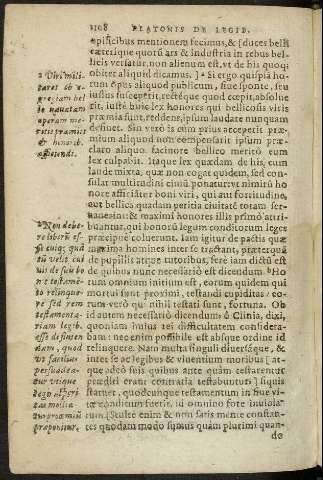 1108 PLATONIS DE LEGIB.
opificibus mentionem fecimus, & [duces belli
cæterique quorū ars & industria in rebus bel
licis versatur, non alienum est, vt de his quoq;
obiter aliquid dicamus. ] a Si ergo quispiā ho-
rum opus aliquod publicum, siue sponte, seu
iussus susceperit, rectéque quod cœpit, absolue
rit, iustè huic lex honores qui bellicosis viris
præmia sunt, reddens, ipsum laudare nunquam
desinet. Sin verò is cum prius acceperit præ-
mium aliquod non compensarit ipsum præ-
claro aliquo facinore bellico meritò eum
lex culpabit. Itaque lex quædam de his, cum
laude mixta, quæ non cogat quidem, sed con-
sulat multitudini ciuiū ponatur: vt nimirū ho
nore afficiātur boni viri, qui aut fortitudine,
aut bellica quadam peritia ciuitatē totam ser-
uauerint: & maximi honores illis primò attri-
buantur, qui honorū legum conditorum leges
præcipuè coluerunt. Iam igitur de pactis quæ
maxima homines inter se tractant, præterquā
de pupillis atque tutoribus, ferè iam dictū est
de quibus nunc necessariò est dicendum. b Ho
rum omnium initium est, eorum quidem qui
morituri sunt proximi, testandi cupiditas: eo-
rum verò qui nihil testati sunt, fortuna. Ob
id autem necessariò dicendum, ô Clinia, dixi,
quoniam huius rei difficultatem considera-
bam: nec enim possibile est absque ordine id
relinquere. Nam multa singuli diuersáque, &
inter se ac legibus & viuentium moribus [ at-
que adeò suis quibus ante quàm testarentur
præditi erant contraria testabuntur ] siquis
statuet, quodcunque testamentum in fine vi-
tæ conditum fuerit, id omnino fore inuiola
tum. [ Stultè enim & non satis mente constan-
tes quodam modo sumus quàm plurimi quan-
do
a Viri mili-
tares ob e-
gregiam bel
li nauatam
operam me-
ritis præmiis
& honorib.
afficiendi.
b Non debe-
re liberū es-
se cuiq; quid
quid velit cui
de suis bo
nis testamē-
to relinque-
re sed rem
testamenta-
riam legib.
esse definien-
dam, quod
vt facilius
persuadea-
tur vtique
legis asperi-
tas mollia-
tur proœmiū
præponitur.